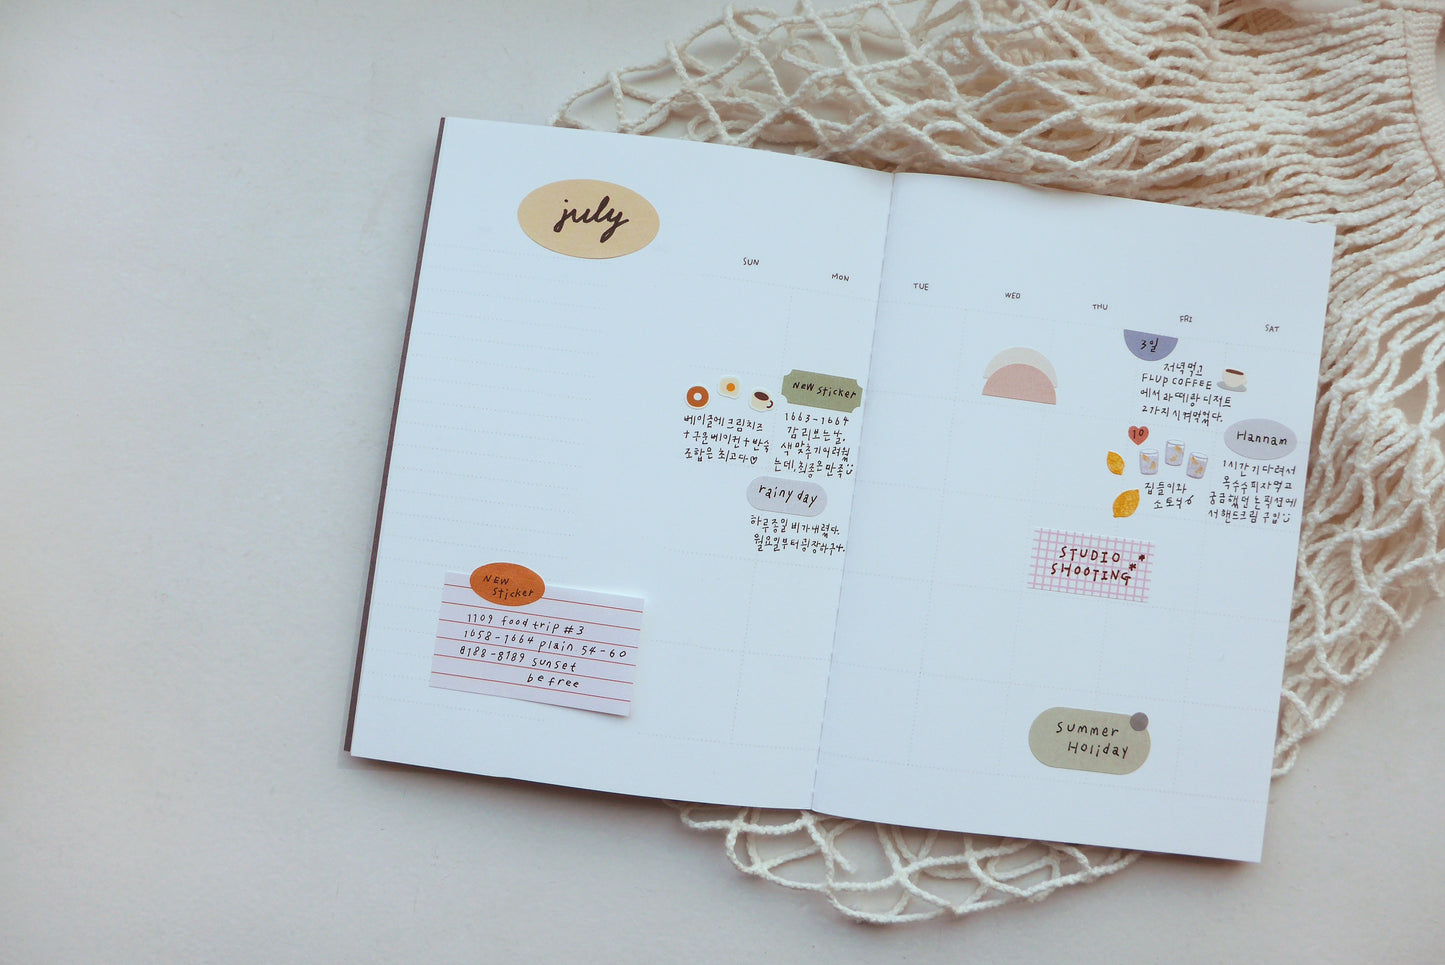 july
SUN
MON
TUE
WED
THU
FRI
SAT
3일
저녁먹고
FLUP COFFEE
에서 라떼랑 디저트
2가지 시켜먹었다.
베이글에 크림치즈
+구운베이컨+반숙
조합은 최고다♡
NEW sticker
1663-1664
감리보는날.
색맞추기어려웠
는데, 최종은만족
10
집들이와
소토닉
Hannam
1시간 기다려서
옥수수피자먹고
궁금했던 논픽션에
서 핸드크림 구입
rainy day
하루종일 비가내렸다.
월요일부터 굉장하구나.
STUDIO
SHOOTING
NEW
sticker
1109 food trip #3
1658-1664 plain 54-60
8188-8189 sunset
be free
summer
Holiday